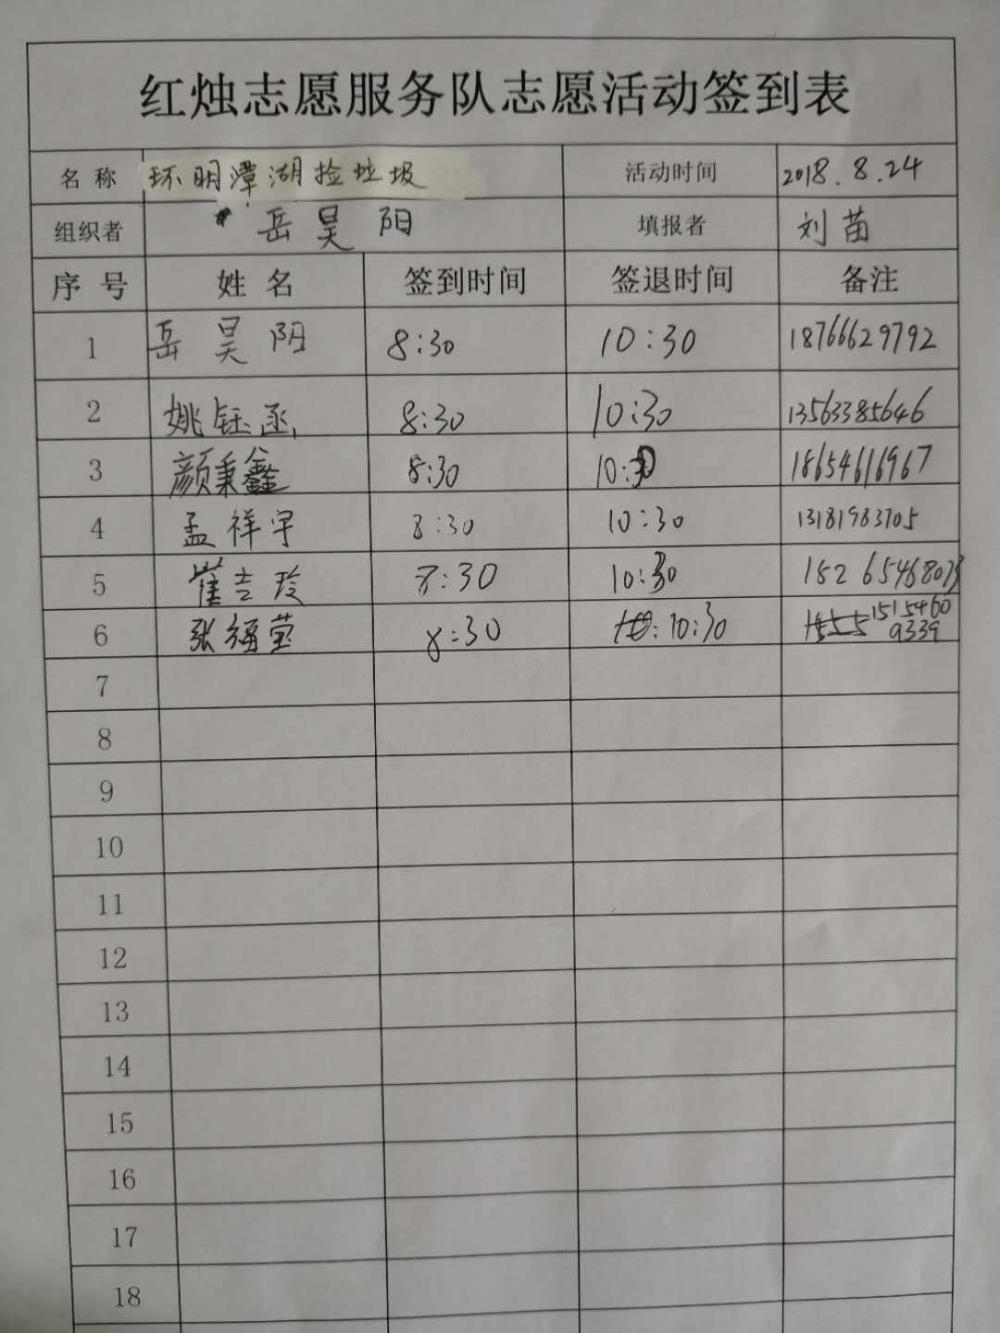 红烛志愿服务队志愿活动签到表
名称 环明潭湖捡垃圾 活动时间 2018.8.24
组织者 岳昊阳 填报者 刘苗
序号 姓名 签到时间 签退时间 备注
1 岳昊阳 8:30 10:30 18766629792
2 姚钰函 8:30 10:30 13563385646
3 颜秉鑫 8:30 10:30 18654616967
4 孟祥宇 8:30 10:30 13181983705
5 崔吉玲 8:30 10:30
6 张福莹 8:30 10:30 15154609339
7
8
9
10
11
12
13
14
15
16
17
18